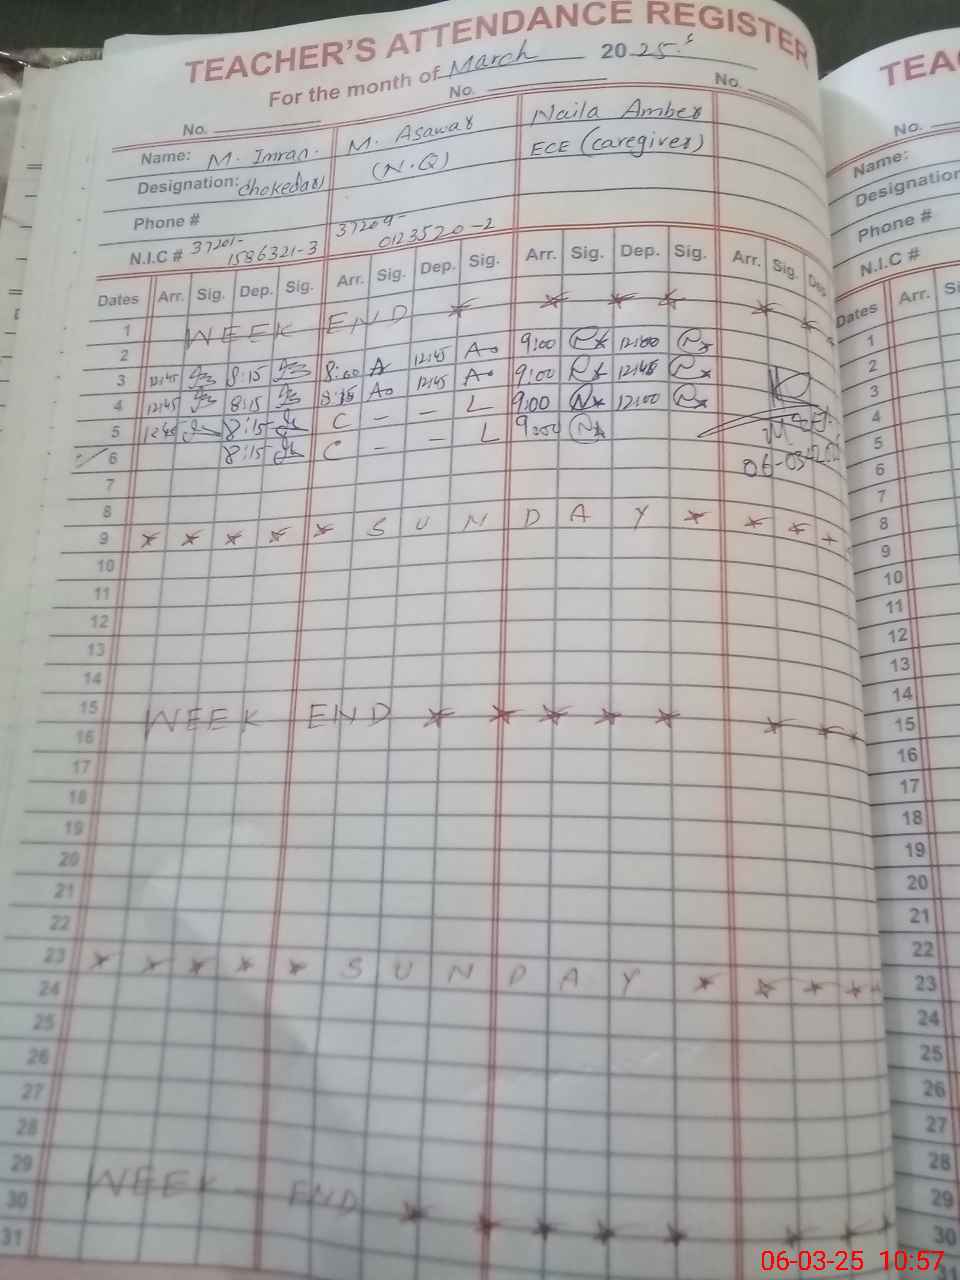 TEACHER'S ATTENDANCE REGISTER
For the month of March 2025
No. No. No.
Name: M. Imran. M. Asawar Naila Amber
Designation: Chokedar (N.Q) ECE (caregiver)
Phone #
N.I.C # 37201-1586321-3 37209-0123520-2
Dates Arr. Sig. Dep. Sig. Arr. Sig. Dep. Sig. Arr. Sig. Dep. Sig. Arr. Sig. Dep.
1 WEEK END
2
3 12:45 8:15 8:00 A 12:45 A 9:00 12:00
4 12:45 8:15 8:15 A 12:45 A 9:00 12:45
5 12:45 8:15 C - - L 9:00 12:00
6 8:15 C - - L 9:00
06-03-2025
7
8
9 SUNDAY
10
11
12
13
14
15 WEEK END
16
17
18
19
20
21
22
23 SUNDAY
24
25
26
27
28
29 WEEK END
30
31
TEA
No.
Name:
Designation
Phone #
N.I.C #
Dates Arr. Si
1
2
3
4
5
6
7
8
9
10
11
12
13
14
15
16
17
18
19
20
21
22
23
24
25
26
27
28
29
30
31
06-03-25 10:57